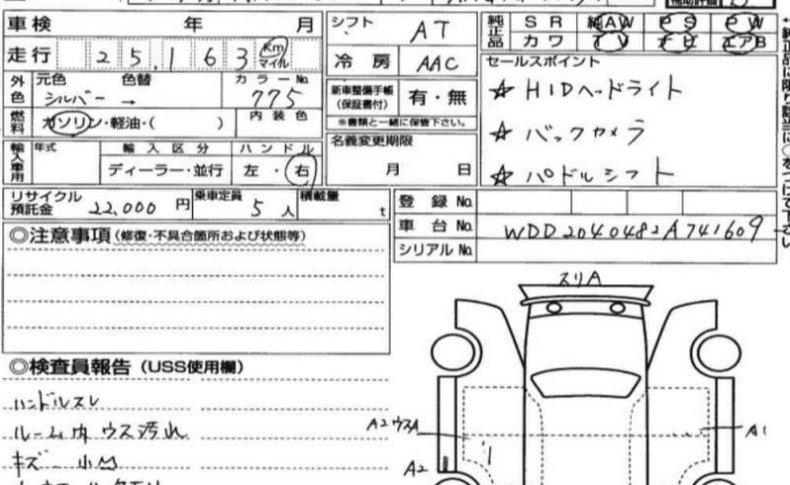 車検 年 月
走行 25,163 Km マイル
外色 元色 色替 カラーNo.
シルバー → 775
燃料 ガソリン・軽油・( ) 内装色
輸入車用 年式 輸入区分 ハンドル
ディーラー・並行 左・右
リサイクル預託金 22,000 円 乗車定員 5 人 積載量 t
シフト AT
冷房 AAC
新車整備手帳(保証書付) 有・無
※書類と一緒に保管下さい。
名義変更期限
月 日
純正品 SR 純AW PS PW
カワ TV ナビ エアB
セールスポイント
☆ HIDヘッドライト
☆ バックカメラ
☆ パドルシフト
登録 No.
車台 No. WDD2040482A741609
シリアル No.
◎注意事項(修復・不具合箇所および状態等)
◎検査員報告(USS使用欄)
ハンドルスレ
ルーム内 ウス汚れ
キズ 小凹
スリA
A2ウスA
A1
A2